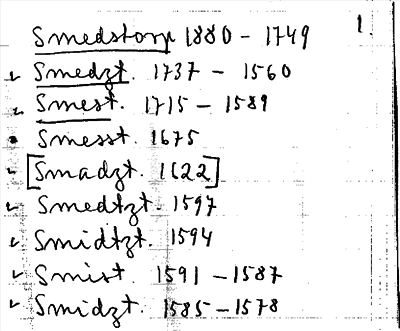 1.
Smedstorp 1880 - 1749
Smedzt. 1737 - 1560
Smest. 1715 - 1589
Smesst. 1675
[Smadzt. 1622]
Smedtzt. 1597
Smidtzt. 1594
Smist 1591 - 1587
Smidzt. 1585 - 1578